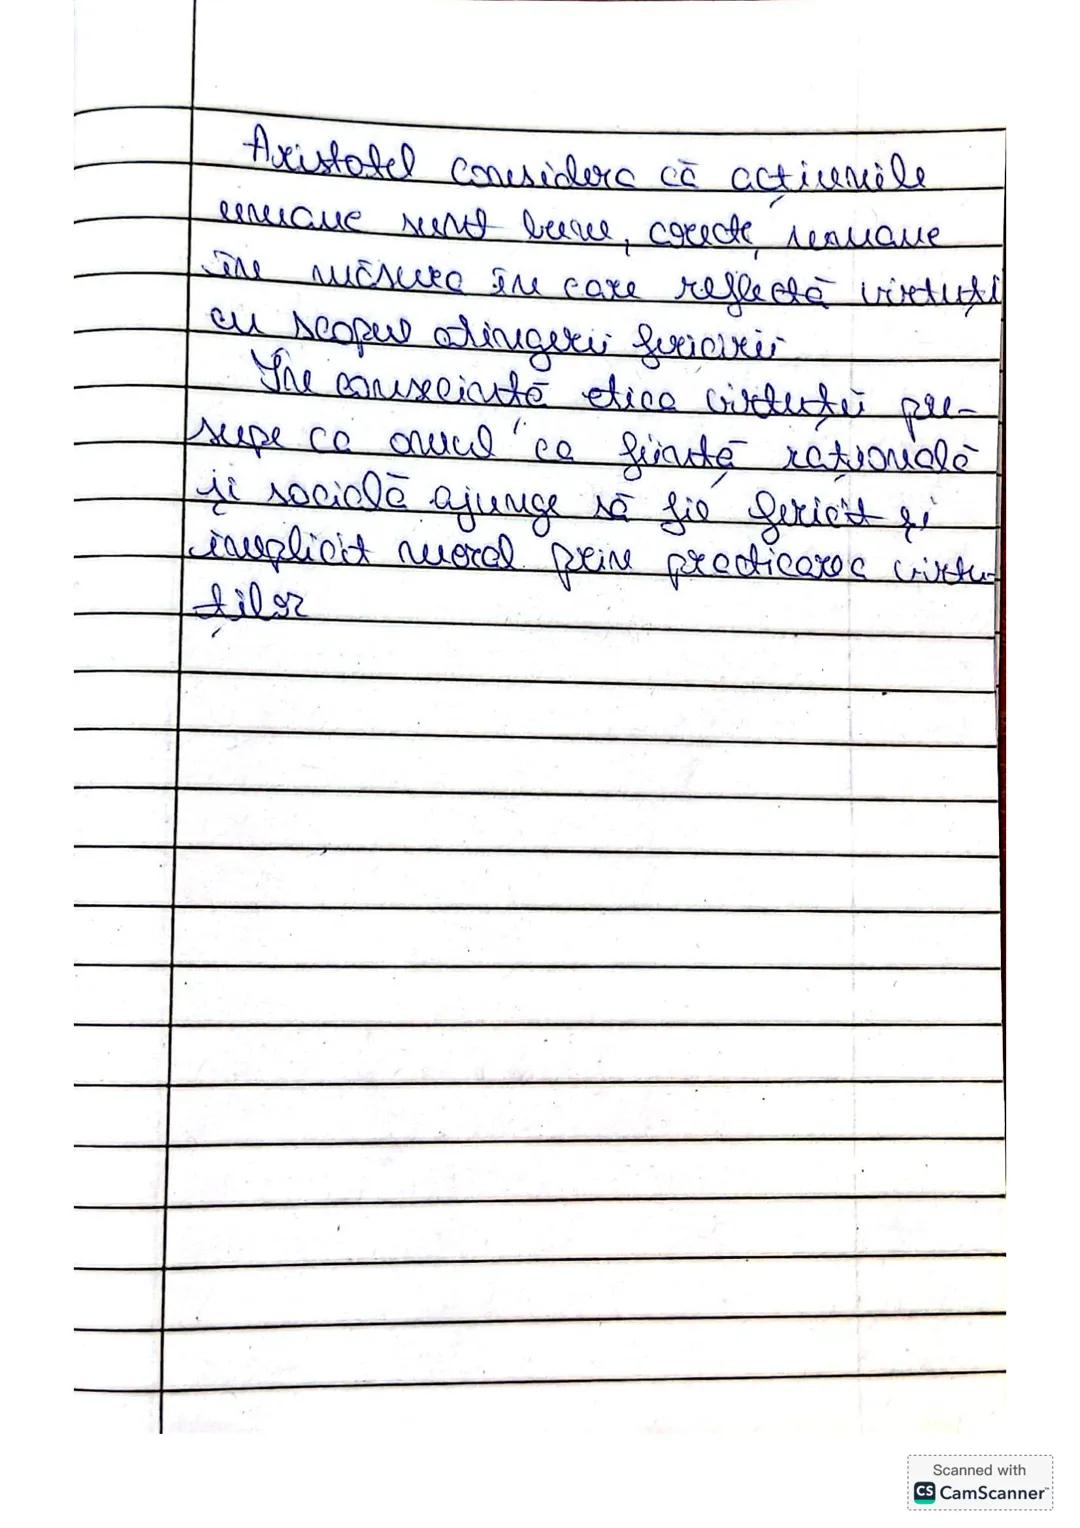 Aristotel considera că acțiunile
umane sunt bune, corecte, umane
în măsura în care reflectă virtuți
cu scopul atingerii fericirii
În consecință etica virtuții pre-
supe ca omul ca ființă rațională
și socială ajunge să fie fericit și
implicit moral prin practicarea virtu-
ților
Scanned with
CS CamScanner